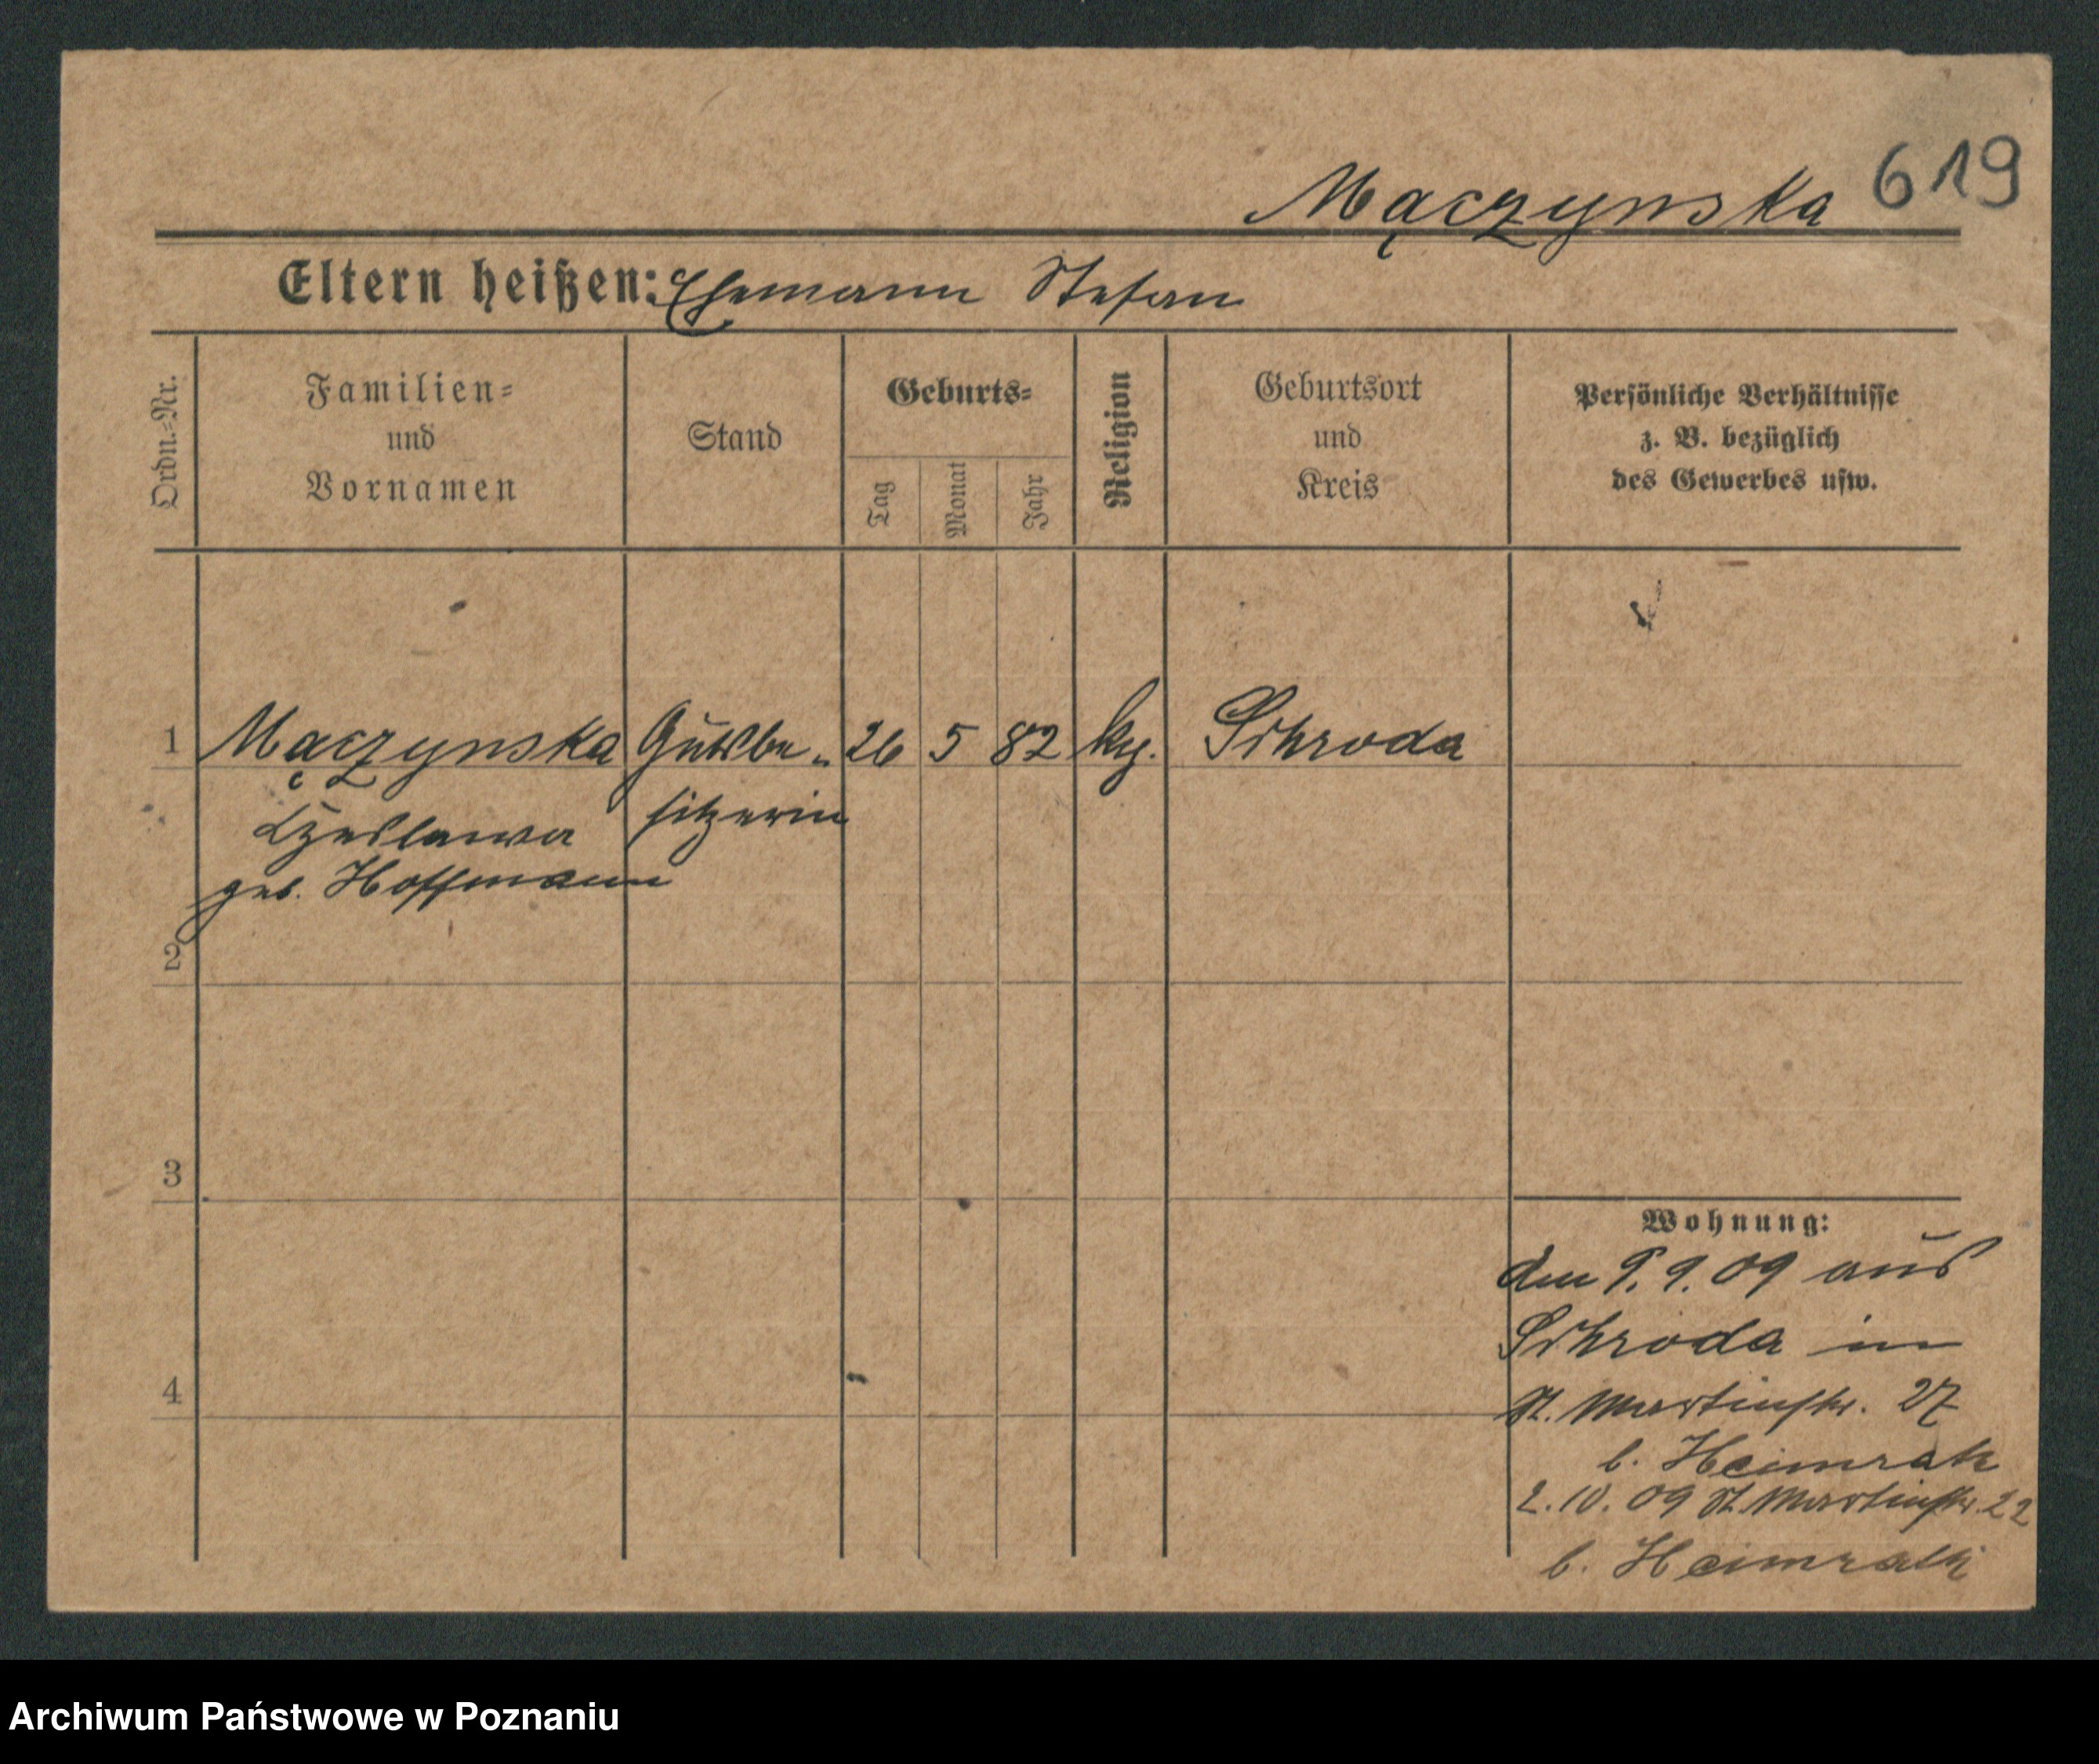 619
Mączynska
Eltern heißen: Ehemann Stefan
Ordn.=Nr.
Familien=
und
Vornamen
Stand
Geburts=
Tag
Monat
Jahr
Religion
Geburtsort
und
Kreis
Persönliche Verhältnisse
z. B. bezüglich
des Gewerbes usw.
1 Mączynska Gutsbe- 26 5 82 Schroda
Czeslawa sitzerin
geb. Hoffmann
2
3
4
Wohnung:
den 9. 9. 09 aus
Schroda in
St. Martinstr. 27
b. Heimrath
2. 10. 09 St. Martinstr. 22
b. Heimrath
Archiwum Państwowe w Poznaniu